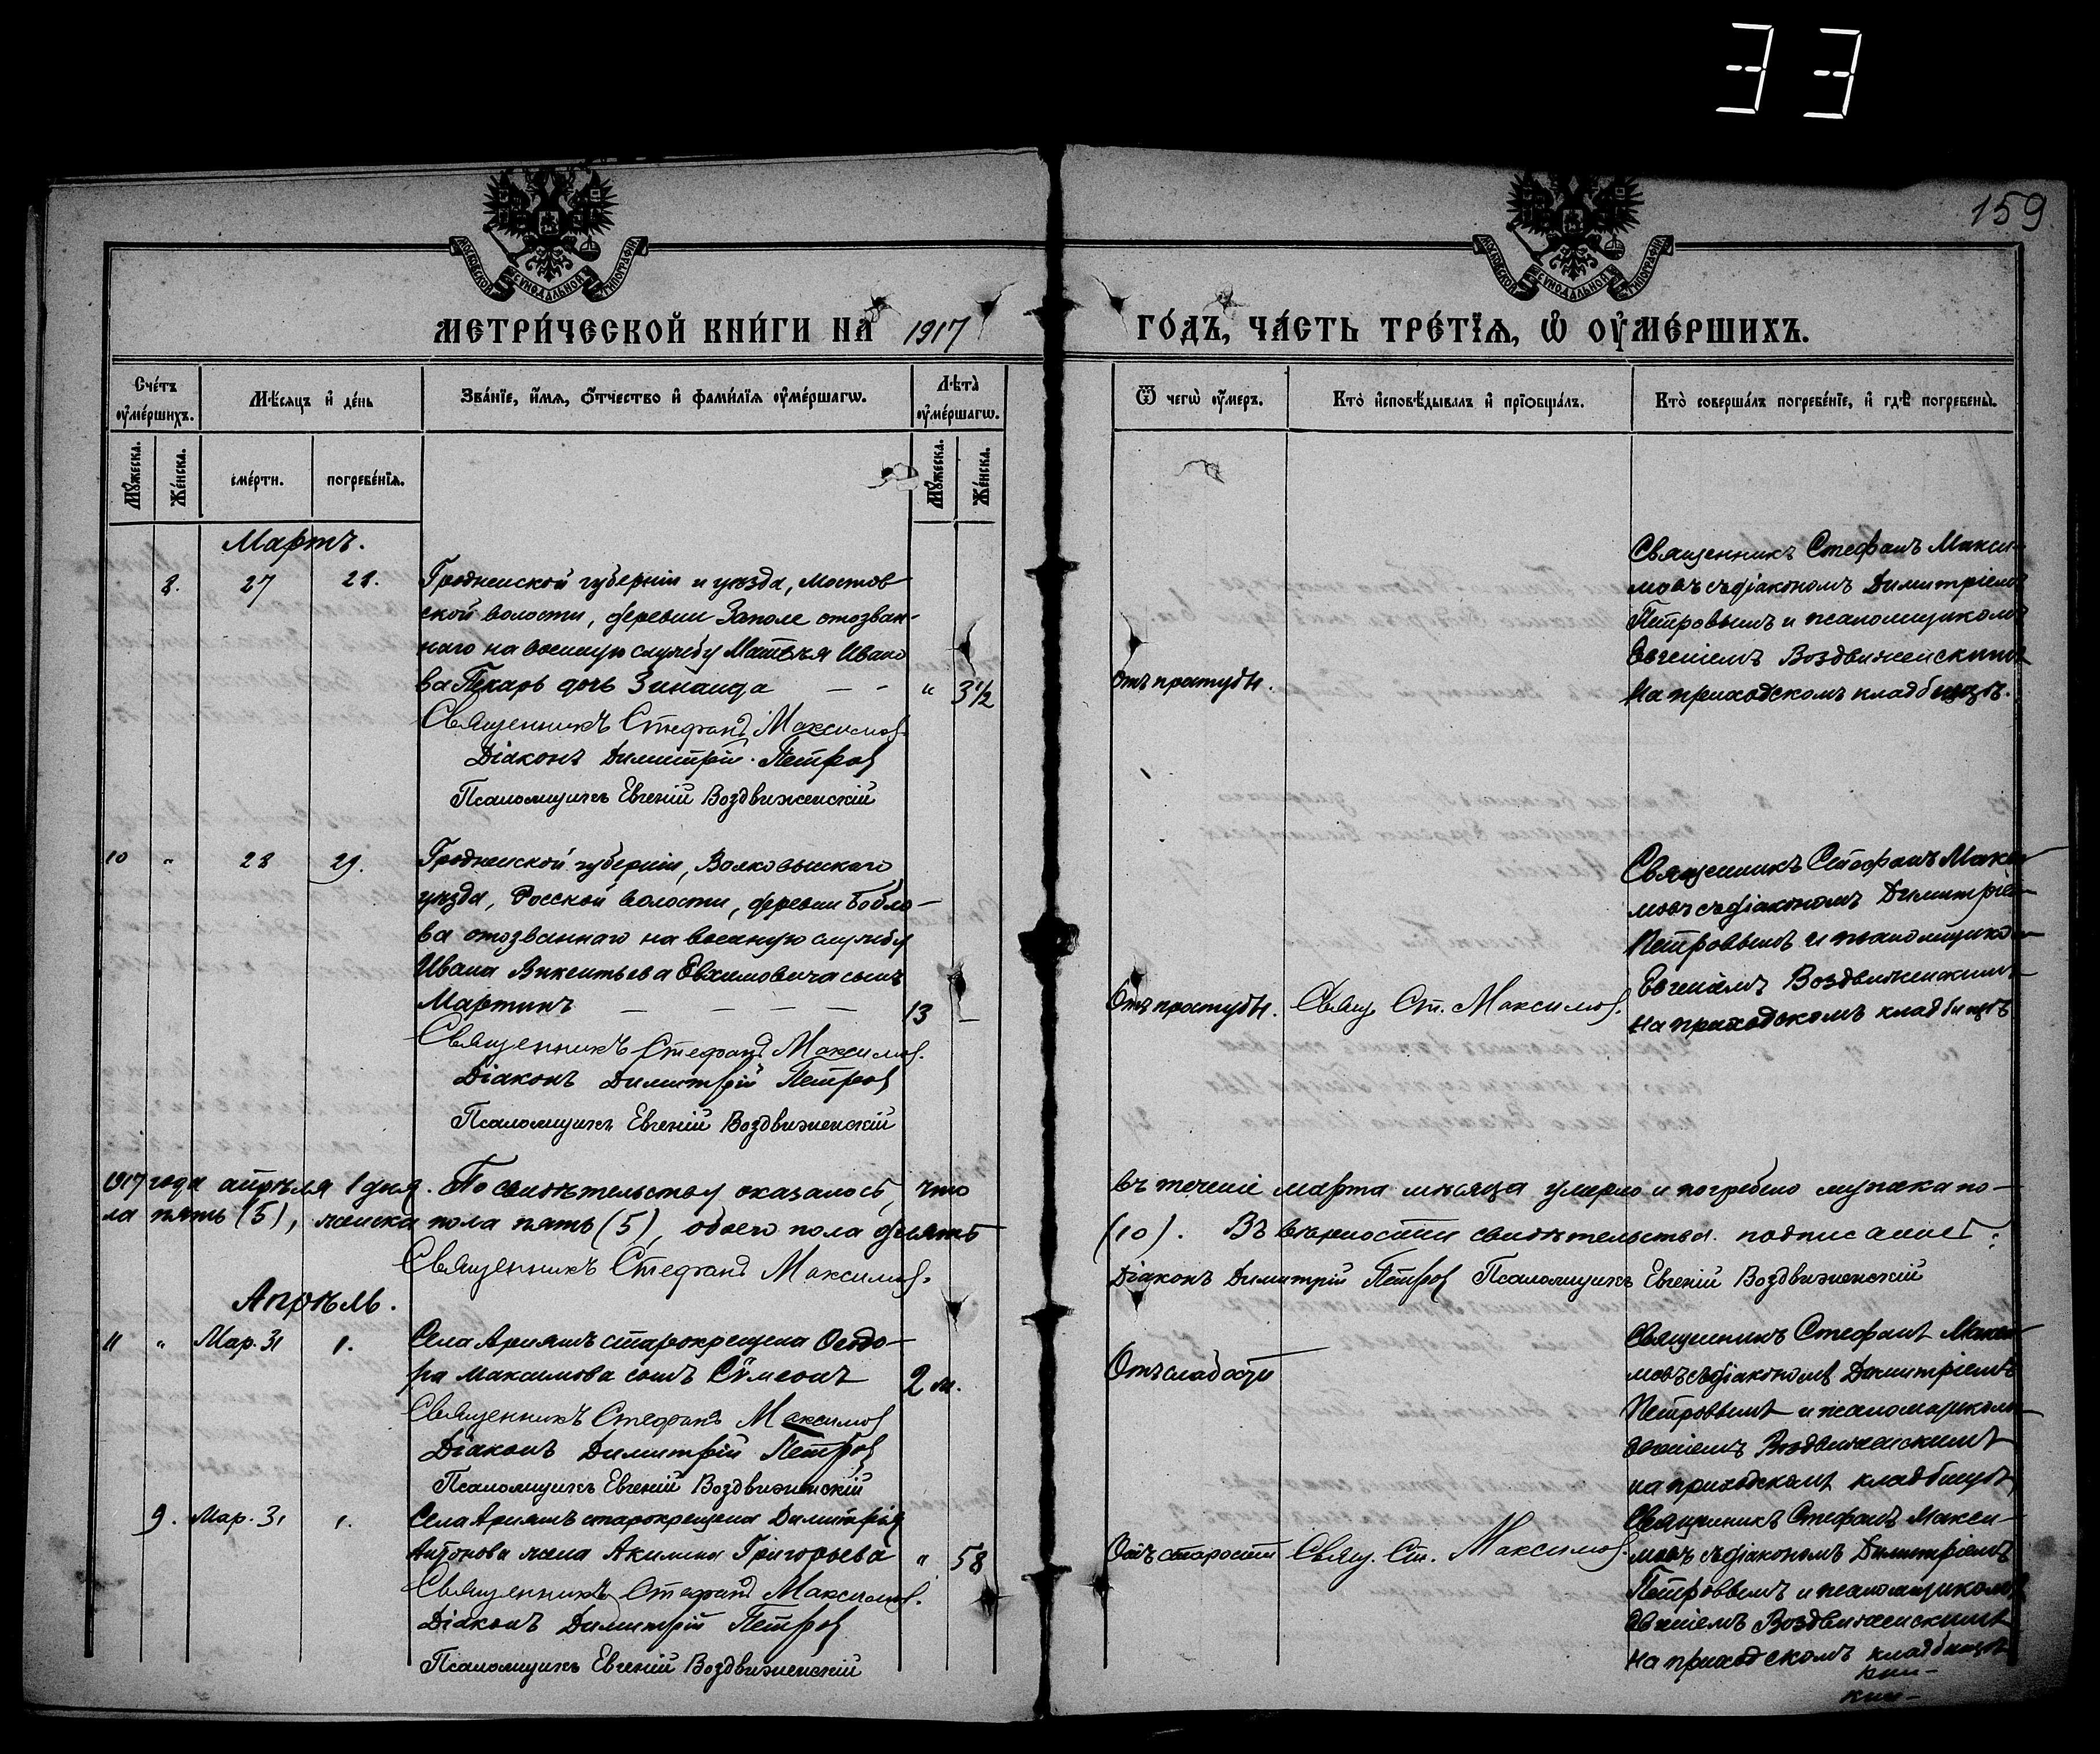 33
159
МОСКОВСКОЙ СѴНОДАЛЬНОЙ ТИПОГРАФІИ
МОСКОВСКОЙ СѴНОДАЛЬНОЙ ТИПОГРАФІИ
МЕТРИ́ЧЕСКОЙ КНИ́ГИ НА 1917 ГО́ДЪ, ЧА́СТЬ ТРЕ́ТЇѦ, Ѡ҆ ОУ҆МЕ́РШИХЪ.
Сче́тъ оу҆ме́ршихъ.
Мѣ́сяцъ и҆ де́нь
Зва́нїе, и҆́мѧ, ѻ҆́тчество и҆ фами́лїѧ оу҆ме́ршагѡ.
Лѣ́та оу҆ме́ршагѡ.
Ѿ чегѡ̀ оу҆́меръ.
Кто̀ и҆сповѣ́дывалъ и҆ прїѡбща́лъ.
Кто̀ соверша́лъ погребе́нїе, и҆ гдѣ̀ погребены̀.
Мꙋ́жеска.
Же́нска.
сме́рти.
погребе́нїѧ.
Мꙋ́жеска.
Же́нска.
Мартъ.
8. 27 28. Гродненской губерніи и уѣзда, Мостов
ской волости, деревни Заполе отозван-
наго на военную службу Матвѣя Ивано
ва Пекарь дочь Зинаида — - " 3½
Священникъ Стефанъ Максимов.
Діаконъ Димитрій Петров
Псаломщикъ Евгеній Воздвиженскій
Отъ простуды.
Священникъ Стефанъ Макси-
мовъ съ діакономъ Димитріемъ
Петровымъ и псаломщикомъ
Евгеніемъ Воздвиженскимъ
На приходскомъ кладбищѣ.
10 " 28 29. Гродненской губерніи, Волковыскаго
уѣзда, Росской волости, деревни Бобло-
ва отозваннаго на военную службу
Ивана Викентьева Евхимовича сынъ
Мартинъ — — — — 13 —
Священникъ Стефанъ Максимов.
Діаконъ Димитрій Петров
Псаломщикъ Евгеній Воздвиженскій
Отъ простуды. Свящ. Ст. Максимов.
Священникъ Стефанъ Макси-
мовъ съ діакономъ Димитріе-
Петровымъ и псаломщико-
Евгеніемъ Воздвиженскимъ
на приходскомъ кладбищѣ
1917 года апрѣля 1 дня. По свидѣтельству оказалось, что въ теченіе марта мѣсяца умерло и погребено мужска по-
ла пять (5), женска пола пять (5), обоего пола десять (10). Въ вѣрности свидѣтельства подписались:
Священникъ Стефанъ Максимов. Діаконъ Димитрій Петров Псаломщикъ Евгеній Воздвиженскій
Апрѣль.
11 " Мар. 31 1. Села Аришъ старокрещена Ѳеодо-
ра Максимова сынъ Сѵмеонъ 2 м.
Священникъ Стефанъ Максимов
Діаконъ Димитрій Петров
Псаломщикъ Евгеній Воздвиженскій
Отъ слабости
Священникъ Стефанъ Макси-
мовъ съ діакономъ Димитріемъ
Петровымъ и псаломщикомъ
Евгеніемъ Воздвиженскимъ
на приходскомъ кладбищѣ
9. Мар. 31 1. Села Аришъ старокрещена Димитрія
Антонова жена Акилина Григорьева " 58
Священникъ Стефанъ Максимов.
Діаконъ Димитрій Петров
Псаломщикъ Евгеній Воздвиженскій
Отъ старости Свящ. Ст. Максимов.
Священникъ Стефанъ Макси-
мовъ съ діакономъ Димитріемъ
Петровымъ и псаломщикомъ
Евгеніемъ Воздвиженскимъ
на приходскомъ кладбищѣ